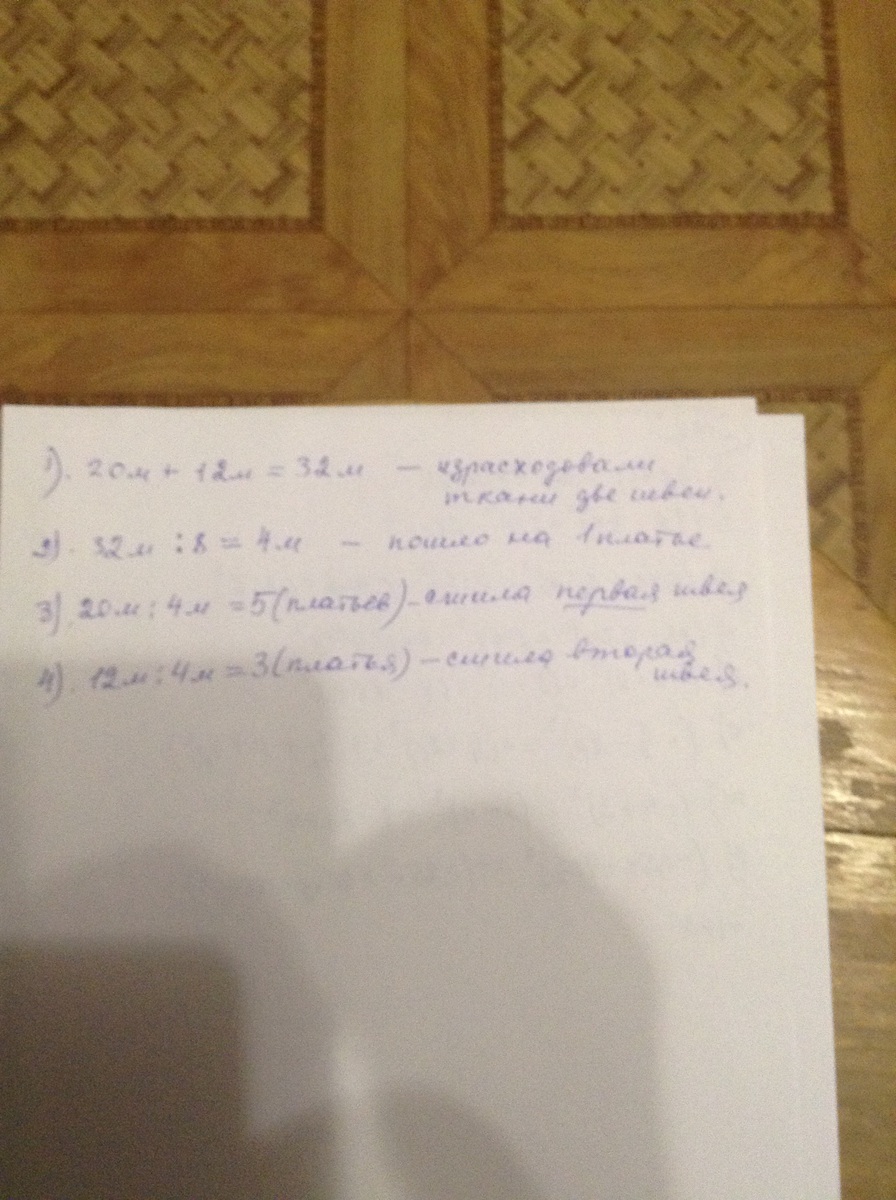 1). 20м + 12м = 32м – израсходовали
ткани две швеи.
2). 32м : 8 = 4м – пошло на 1 платье.
3). 20м : 4м = 5(платьев) – сшила первая швея
4). 12м : 4м = 3(платья) – сшила вторая
швея.